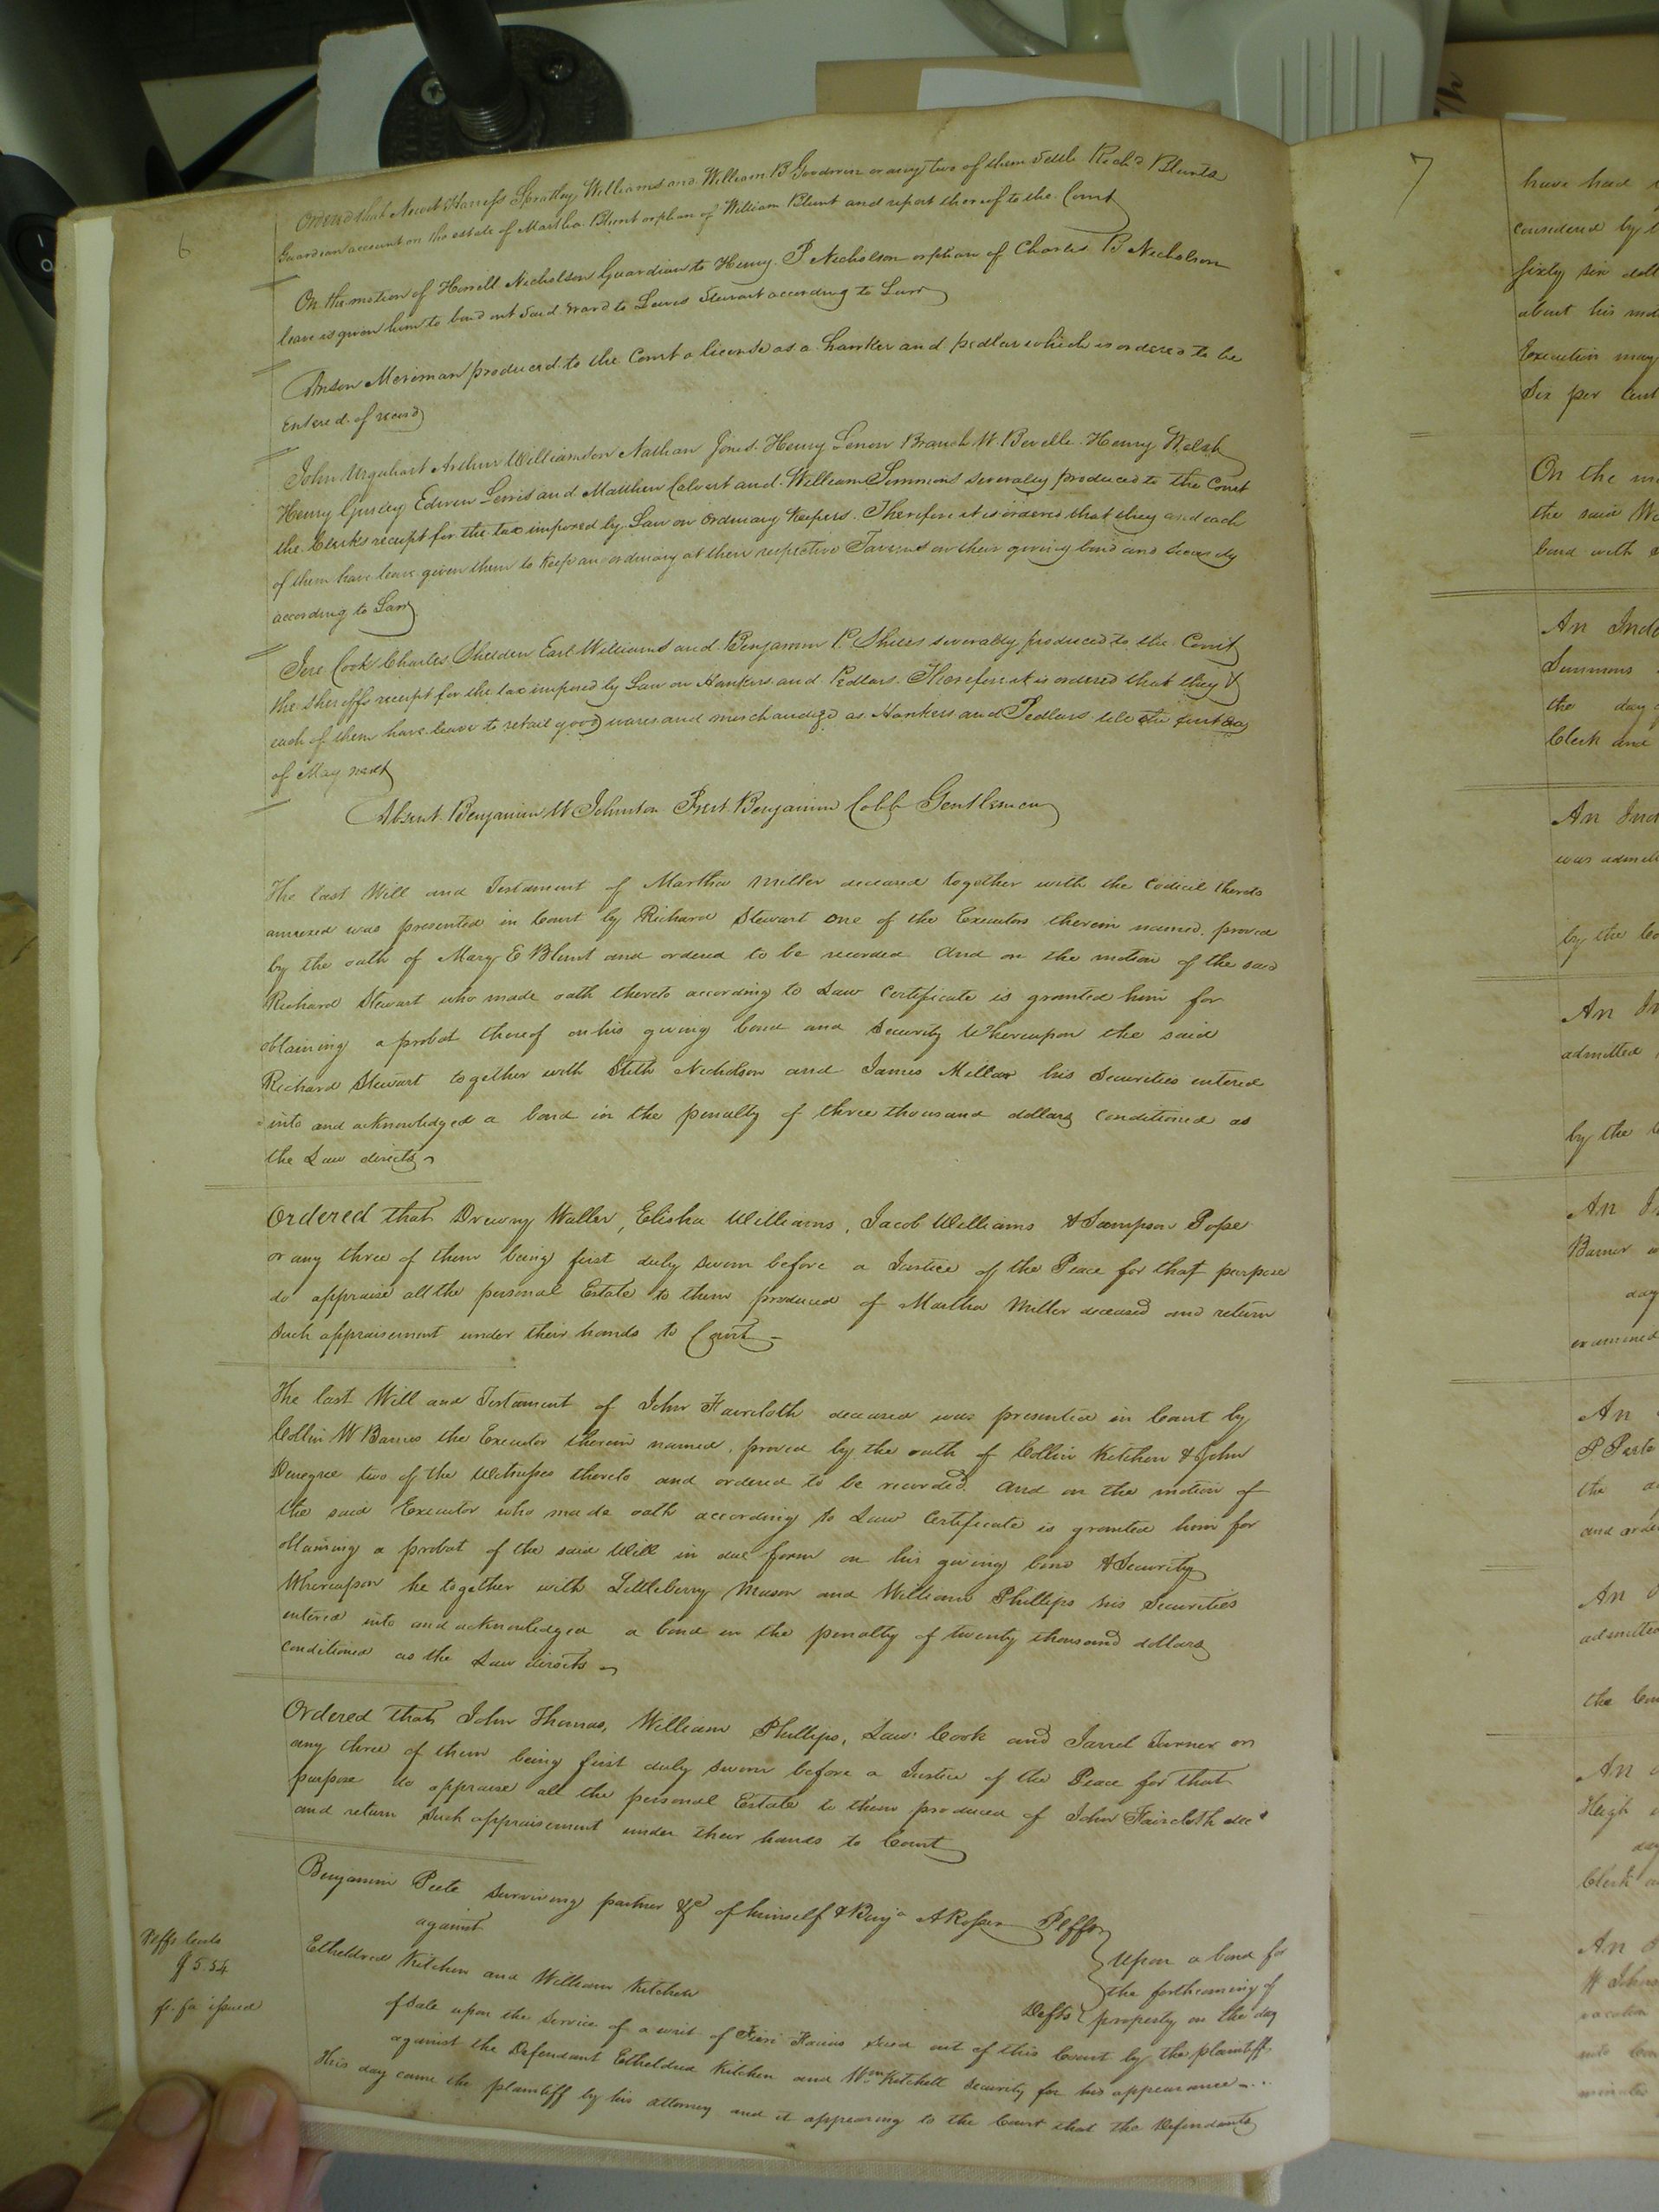 6
Ordered that Newit Harress Spratley Williams and William B Goodwin or any two of them settle Rich'd Blunts
Guardian account on the estate of Martha Blunt orphan of William Blunt and report thereof to the Court
On the motion of Harrell Nicholson Guardian to Henry P Nicholson orphan of Charles B Nicholson
leave is given him to bind out said ward to Lewis Stewart according to Law
Anson Meriman produced to the Court a license as a hawker and pedlar which is ordered to be
entered of record
John Urquhart Arthur Williamson Nathan Jones Henry Lenow Branch W. Beville Henry Welsh
Henry Gurley Edwin Lewis and Matthew Calvert and William Simmons severally produced to the Court
the Clerks receipt for the tax imposed by Law on Ordinary Keepers. Therefore it is ordered that they and each
of them have leave given them to keep an ordinary at their respective Taverns on their giving bond and security
according to Law
Jere Cook Charles Shelden Earl Williams and Benjamin P. Shiles severally produced to the Court
the sheriffs receipt for the tax imposed by Law on Hawkers and Pedlars. Therefore it is ordered that they &
each of them have leave to retail good wares and merchandize as Hawkers and Pedlars till the first day
of May next
Absent Benjamin W Johnston Prest Benjamin Cobb Gentlemen
The last Will and Testament of Martha Miller deceased together with the Codicil thereto
annexed was presented in Court by Richard Stewart one of the Executors therein named, proved
by the oath of Mary E Blunt and ordered to be recorded And on the motion of the said
Richard Stewart who made oath thereto according to Law Certificate is granted him for
obtaining a probat thereof on his giving bond and Security Whereupon the said
Richard Stewart together with Stith Nicholson and James Millar his Securities entered
into and acknowledged a bond in the penalty of three thousand dollars conditioned as
the Law directs
Ordered that Drewry Waller, Elisha Williams, Jacob Williams & Sampson Pope
or any three of them being first duly sworn before a Justice of the Peace for that purpose
do appraise all the personal Estate to them produced of Martha Miller deceased and return
such appraisement under their hands to Court
The last Will and Testament of John Faircloth deceased was presented in Court by
Collin W Barnes the Executor therein named, proved by the oath of Collin Kitchen & John
Denegree two of the Witnesses thereto and ordered to be recorded. And on the motion of
the said Executor who made oath according to Law Certificate is granted him for
obtaining a probat of the said Will in due form on his giving bond & Security
Whereupon he together with Littleberry Mason and William Phillips his Securities
entered into and acknowledged a bond in the penalty of twenty thousand dollars
conditioned as the Law directs
Ordered that John Thomas, William Phillips, Law: Cook and Jarrel Turner or
any three of them being first duly sworn before a Justice of the Peace for that
purpose do appraise all the personal Estate to them produced of John Faircloth decd
and return such appraisement under their hands to Court
Benjamin Peete surviving partner &c of himself & Benja A Rosser Plffs
against
Etheldred Kitchen and William Kitchen Defts
Upon a bond for
the forthcoming of
property on the day
of sale upon the service of a writ of Fieri Facias sued out of this Court by the plaintiff
against the Defendant Etheldred Kitchen and Wm Kitchell security for his appearance
This day came the plaintiff by his attorney and it appearing to the Court that the Defendants
Plffs costs
$ 5.54
fi. fa issued
7
have had
considered by
sixty six doll
about his
Execution may
Six per Cent
On the
the said
bond with
An Inde
Simmons
the day
Clerk and
An
was
by the
An
admitted
by the
An
Barner
day
examined
An
the
and orde
An
admitted
the
An
day
Clerk
An